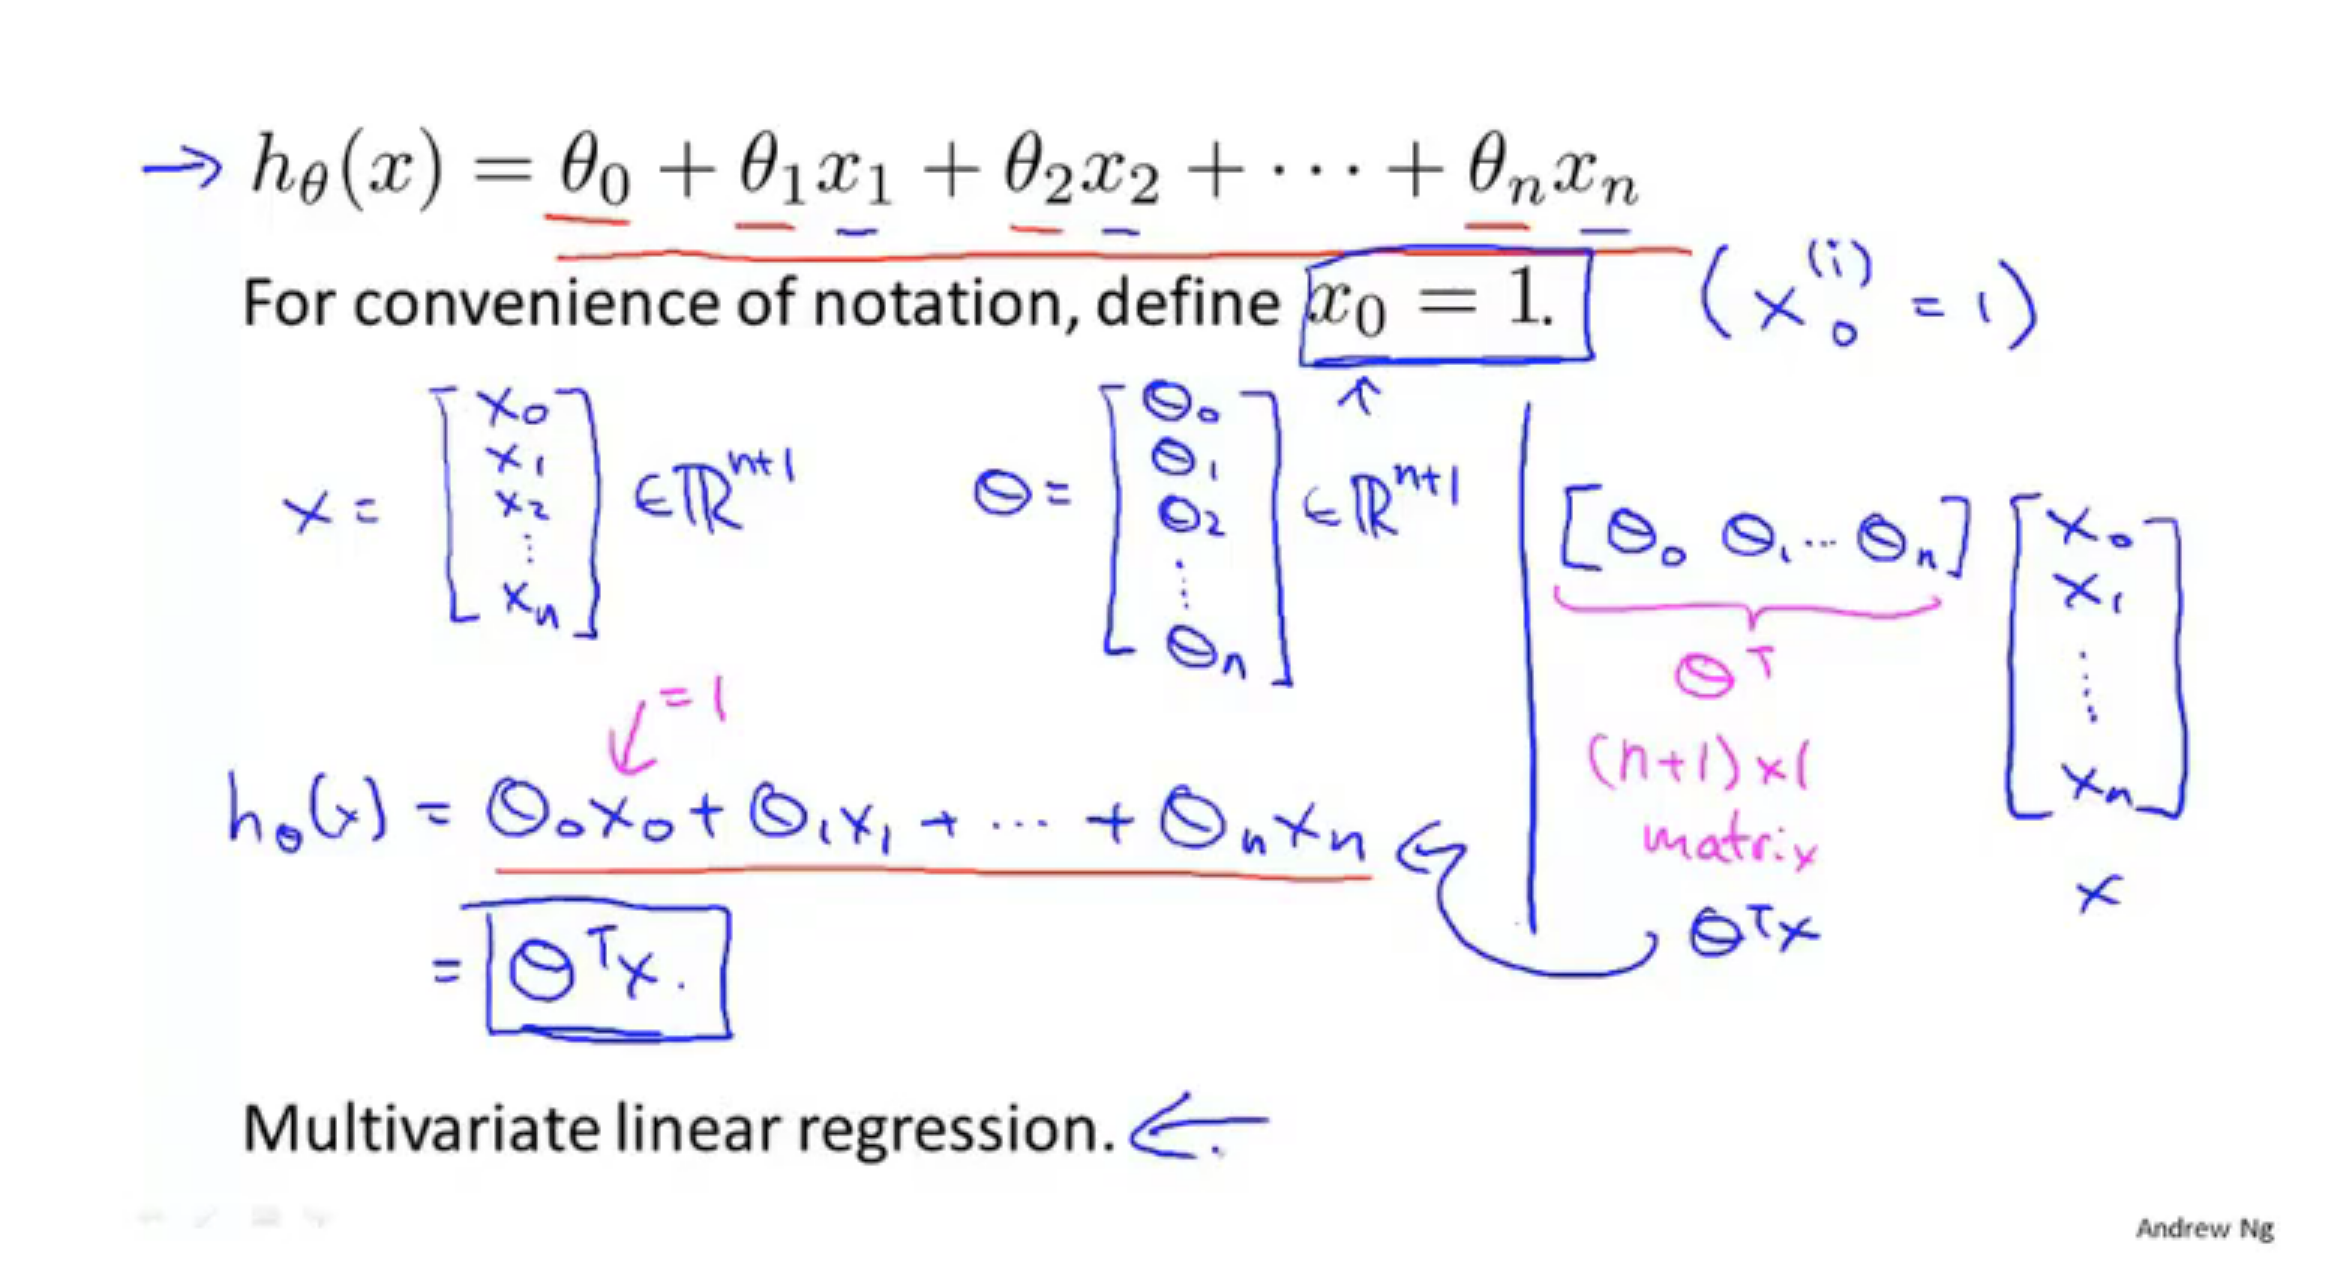 → hθ(x) = θ0 + θ1x1 + θ2x2 + ··· + θnxn
For convenience of notation, define x0 = 1. (x0^(i) = 1)
x = [x0 x1 x2 ⋮ xn] ∈ ℝ^(n+1) θ = [θ0 θ1 θ2 ⋮ θn] ∈ ℝ^(n+1) ↑
[θ0 θ1 ··· θn] [x0 x1 ⋮ xn]
θ^T
(n+1)×1
matrix
θ^T x x
= 1
hθ(x) = θ0x0 + θ1x1 + ··· + θnxn ←
= θ^T x.
Multivariate linear regression. ←
Andrew Ng